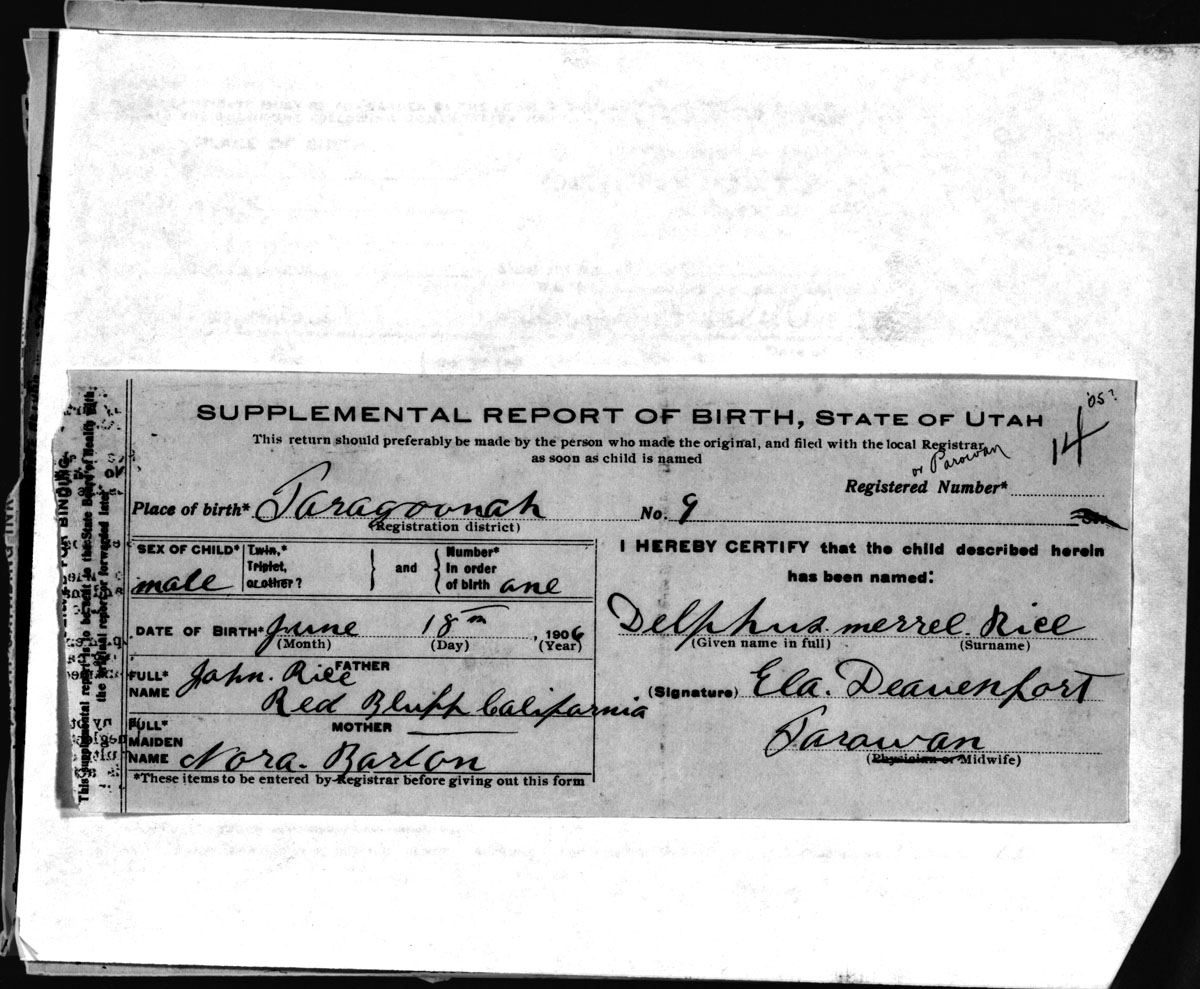 SUPPLEMENTAL REPORT OF BIRTH, STATE OF UTAH
'05?
14
This return should preferably be made by the person who made the original, and filed with the local Registrar
as soon as child is named
or Parowan
Registered Number*
Place of birth* Paragoonah No. 9
(Registration district)
SEX OF CHILD* male
Twin,* Triplet, or other? } and { Number* In order of birth one
DATE OF BIRTH* June 18th, 1906
(Month) (Day) (Year)
FULL* NAME John. Rice FATHER
Red Bluff California
FULL* MAIDEN NAME Nora. Barton MOTHER
*These items to be entered by Registrar before giving out this form
I HEREBY CERTIFY that the child described herein
has been named:
Delphus. merrel. Rice
(Given name in full) (Surname)
(Signature) Ela. Deavenport
Parowan
(Physician or Midwife)
This supplemental report is to be sent to the State Board of Health with
the original report or forwarded later.
FOR BINDING